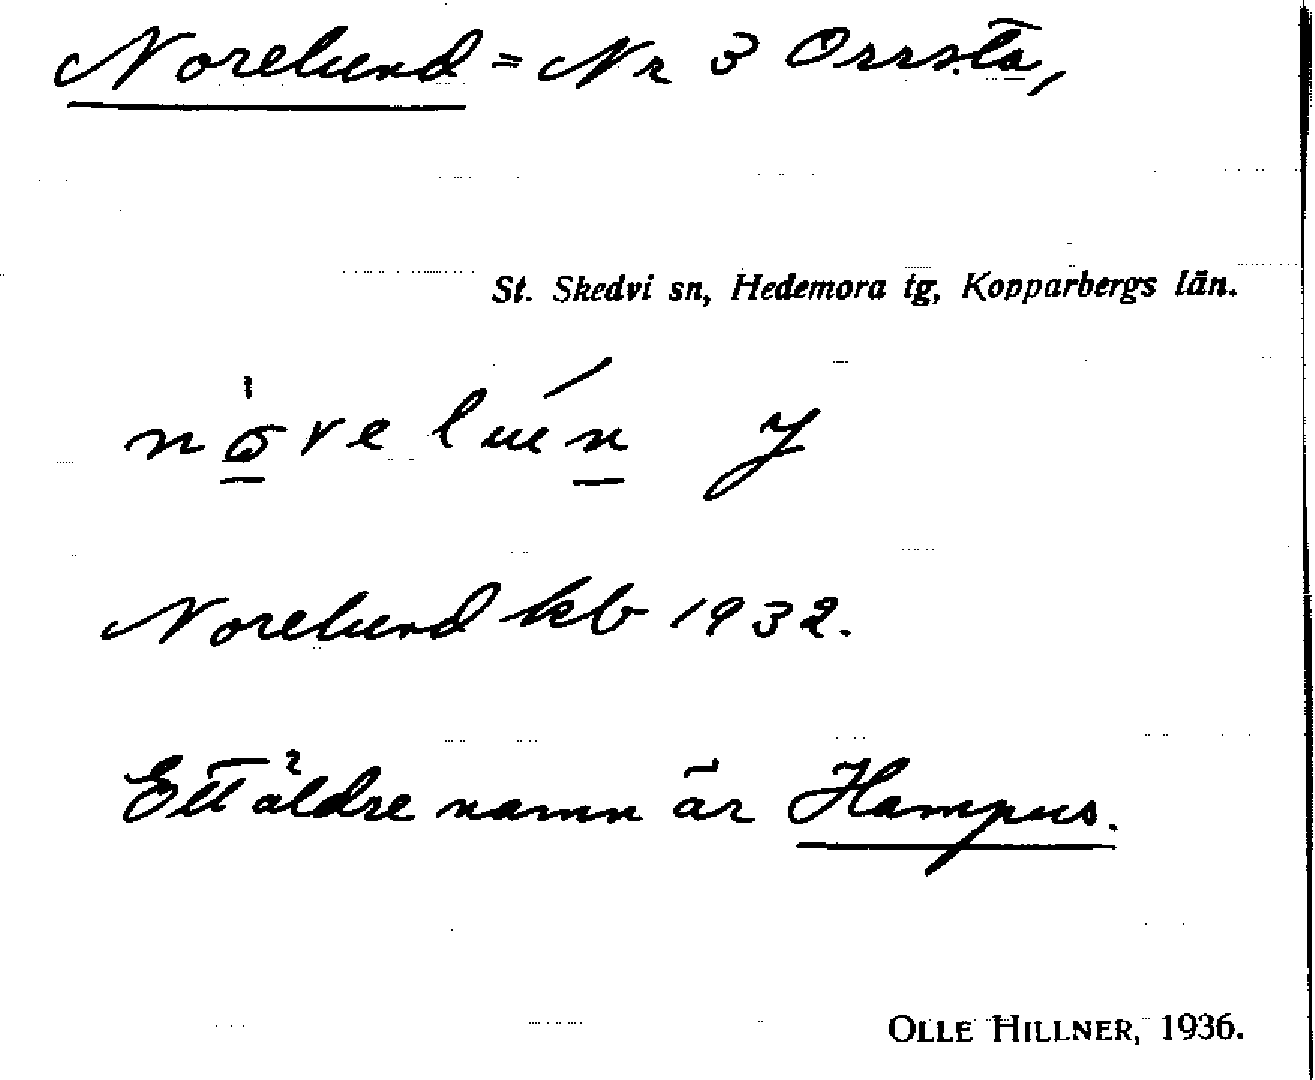 Norelund = Nr 3 Orrsta,
St. Skedvi sn, Hedemora tg, Kopparbergs län.
Norelund kb 1932.
Ett äldre namn är Hampus.
OLLE HILLNER, 1936.